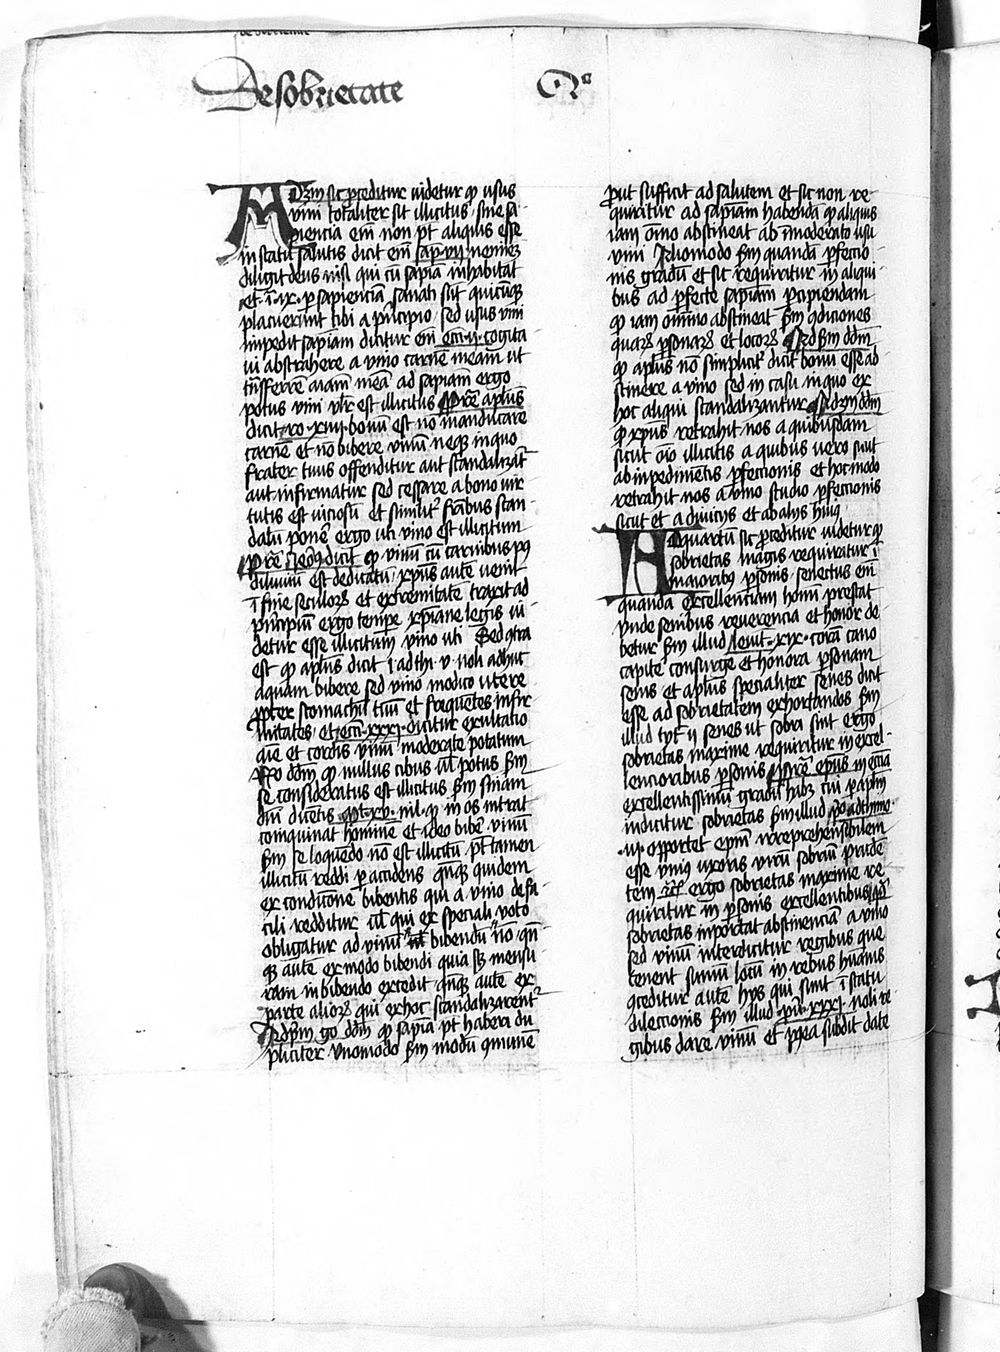 De sobrietate Qº
AD 3m sic proceditur uidetur qp usus
uini totaliter sit illicitus · sine sa
piencia em̄ non pt aliquis esse
in statu salutis dicit em̄ sap · vij · neminē
diligit deus nisi qui cū sapīa inhabitat
et · ī · ix · p sapienciā sanati sūt quicūqȝ
placuerunt tibi a pⁱncipio · sed usus vini
impedit sapiam dicitur em̄ ecci · ij · cogita
ui abstrahere a vino carnē meam ut
tⁿsferrē aīam meā ad sapiam ergo
potus vini vlr̄ est illicitus Pret̄ ap̄lus
dicit ro · xiiij · bonū est nō manducare
carnē et nō bibere vinū neqȝ in quo
frater tuus offenditur aut scandalizat̄
aut infirmatur sed cessare a bono vir
tutis est viciosū et similit̄ frībus scan
dalū ponē ergo uti vino est illicitum
Pret̄ Ieroꝰ dicit qp vinū cū carnibus pꝰ
diluuiū est dedicatū xpūs autē venit
ī fine seculoꝝ et extremitatē traxit ad
pⁱncipiū ergo tempe xpiane legis vi
detur esse illicitum vino uti Sed ꝯtra
est qp ap̄lus dicit ī ad thi · v · noli adhuc
aquam bibere sed vino modico vtere
ꝓpter stomachū tuū et frequētes infir
mitates · et ecci · xxxi · dicitur exultatio
aīe et cordis vinū moderate potatum
Rº dd̄m qp nullus cibus ul̄ potus sm̄
se consideratus est illicitus sm̄ snīam
dn̄i dicētis mt · xv · nil qp in os intrat
coinquinat hominē et ideo bibē vinū
sm̄ se loquēdo nō est illicitū pt̄ tamen
illicitū reddi p accidens qn̄qȝ quidem
ex condicione bibentis qui a vino de fa
cili redditur ul̄ qui ex speciali voto
obligatur ad vinū nō bibendū qn̄
qȝ autē ex modo bibendi quia sȝ mensu
ram in bibendo excedit qn̄qȝ autē ex
parte alioꝝ qui ex hoc scandalizarent̄
Ad pm̄ gº dd̄m qp sapīa pt haberi du
pliciter vno modo sm̄ modū ꝯmunē
ꝓut sufficit ad salutem et sic non re
quiritur ad sapīam habendā qp aliquis
iam oīno abstineat ab īmoderato usu
vini Alio modo sm̄ quandā ꝑfectio
nis gradū et sic requiritur in aliqui
bus ad ꝑfecte sapīam ꝑcipiendam
qp iam oīnino abstineat sm̄ ꝯdiciones
quaꝝ ꝑsonaꝝ et locoꝝ Ad sm̄ dd̄m
qp ap̄lus nō simplicit̄ dicit bonū esse ab
stinere a vino sed in casu in quo ex
hoc aliqui scandalizantur Ad 3m dd̄m
qp xpūs retrahit nos a quibusdam
sicut oīo illicitis a quibus vero sicut
ab inpedimētis ꝑfectionis et hoc modo
retrahit nos a vino studio ꝑfectionis
sicut et a diuicijs et ab alijs hꝰiꝰ
AD quartū sic ꝓceditur videtur qp
sobrietas magis requiratur ī
maioribꝰ ꝑsonis · senectus em̄
quandā excellentiam homī prestat
vnde senibus reuerencia et honor de
betur sm̄ illud leuit · xix · corā cano
capite consurge et honora ꝑsonam
senis et ap̄lus specialiter senes dicit
esse ad sobrietatem exhortandos sm̄
illud tyt · ij senes ut sobrij sint ergo
sobrietas maxime requiritur in excel
lencioribus ꝑsonis Pret̄ ep̄us in ecc̄ia
excellentissimū gradū habȝ cui ꝑ ap̄lm
indicitur sobrietas sm̄ illud pº ad thimo ·
iij · opportet ep̄m irreprehensibilem
esse vniꝰ vxoris virū sobriū prudē
tem ⁊c̄ ergo sobrietas maxime re
quiritur in ꝑsonis excellentibus Pret̄
sobrietas inportat abstinenciā a vino
sed vinū interdicitur regibus qui
tenent summū locū in rebus hūanis
ꝯceditur autē hijs qui sunt ī statu
deiectionis sm̄ illud pu · xxxi · noli re
gibus dare vinū et postea subdit date